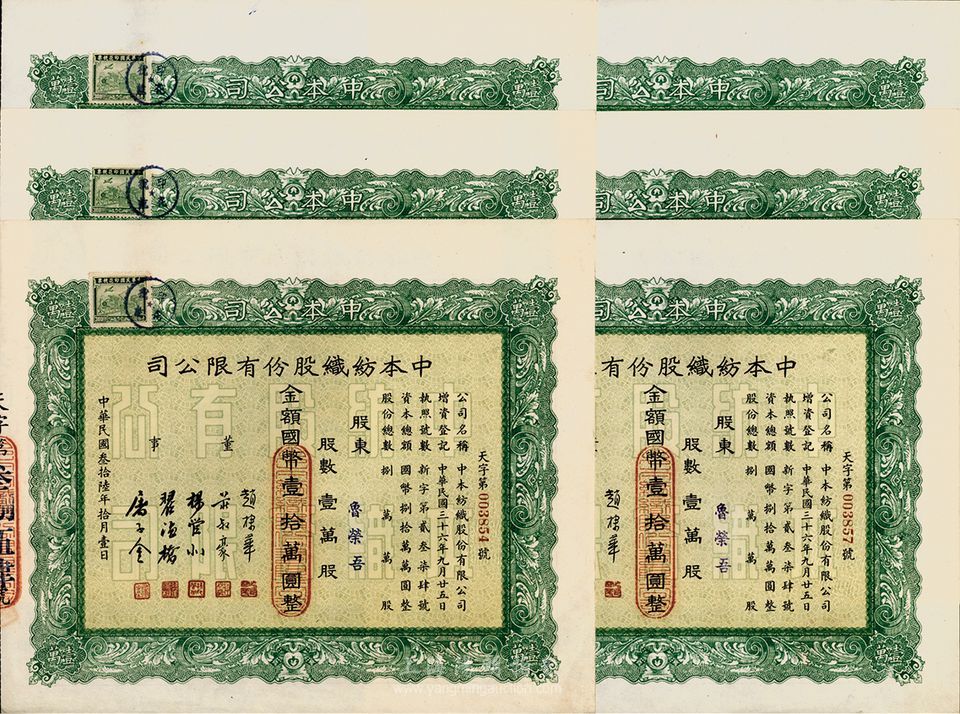 中本公司
中本公司
中本公司
中本公司
中本公司
中本公司
壹萬
中本紡織股份有限公司
天字第003854號
公司名稱 中本紡織股份有限公司
增資登記 中華民國三十六年九月廿五日
執照號數 新字第貳叁柒肆號
資本總額 國幣捌拾萬萬圓整
股份總數 捌萬萬股
股東 魯榮吾
股數 壹萬股
金額國幣壹拾萬圓整
董事
中華民國叁拾陸年拾月壹日
中本紡織股份有
天字第003857號
公司名稱 中本紡織股份有限公司
增資登記 中華民國三十六年九月廿五日
執照號數 新字第貳叁柒肆號
資本總額 國幣捌拾萬萬圓整
股份總數 捌萬萬股
股東 魯榮吾
股數 壹萬股
金額國幣壹拾萬圓整
www.yangmingauction.com